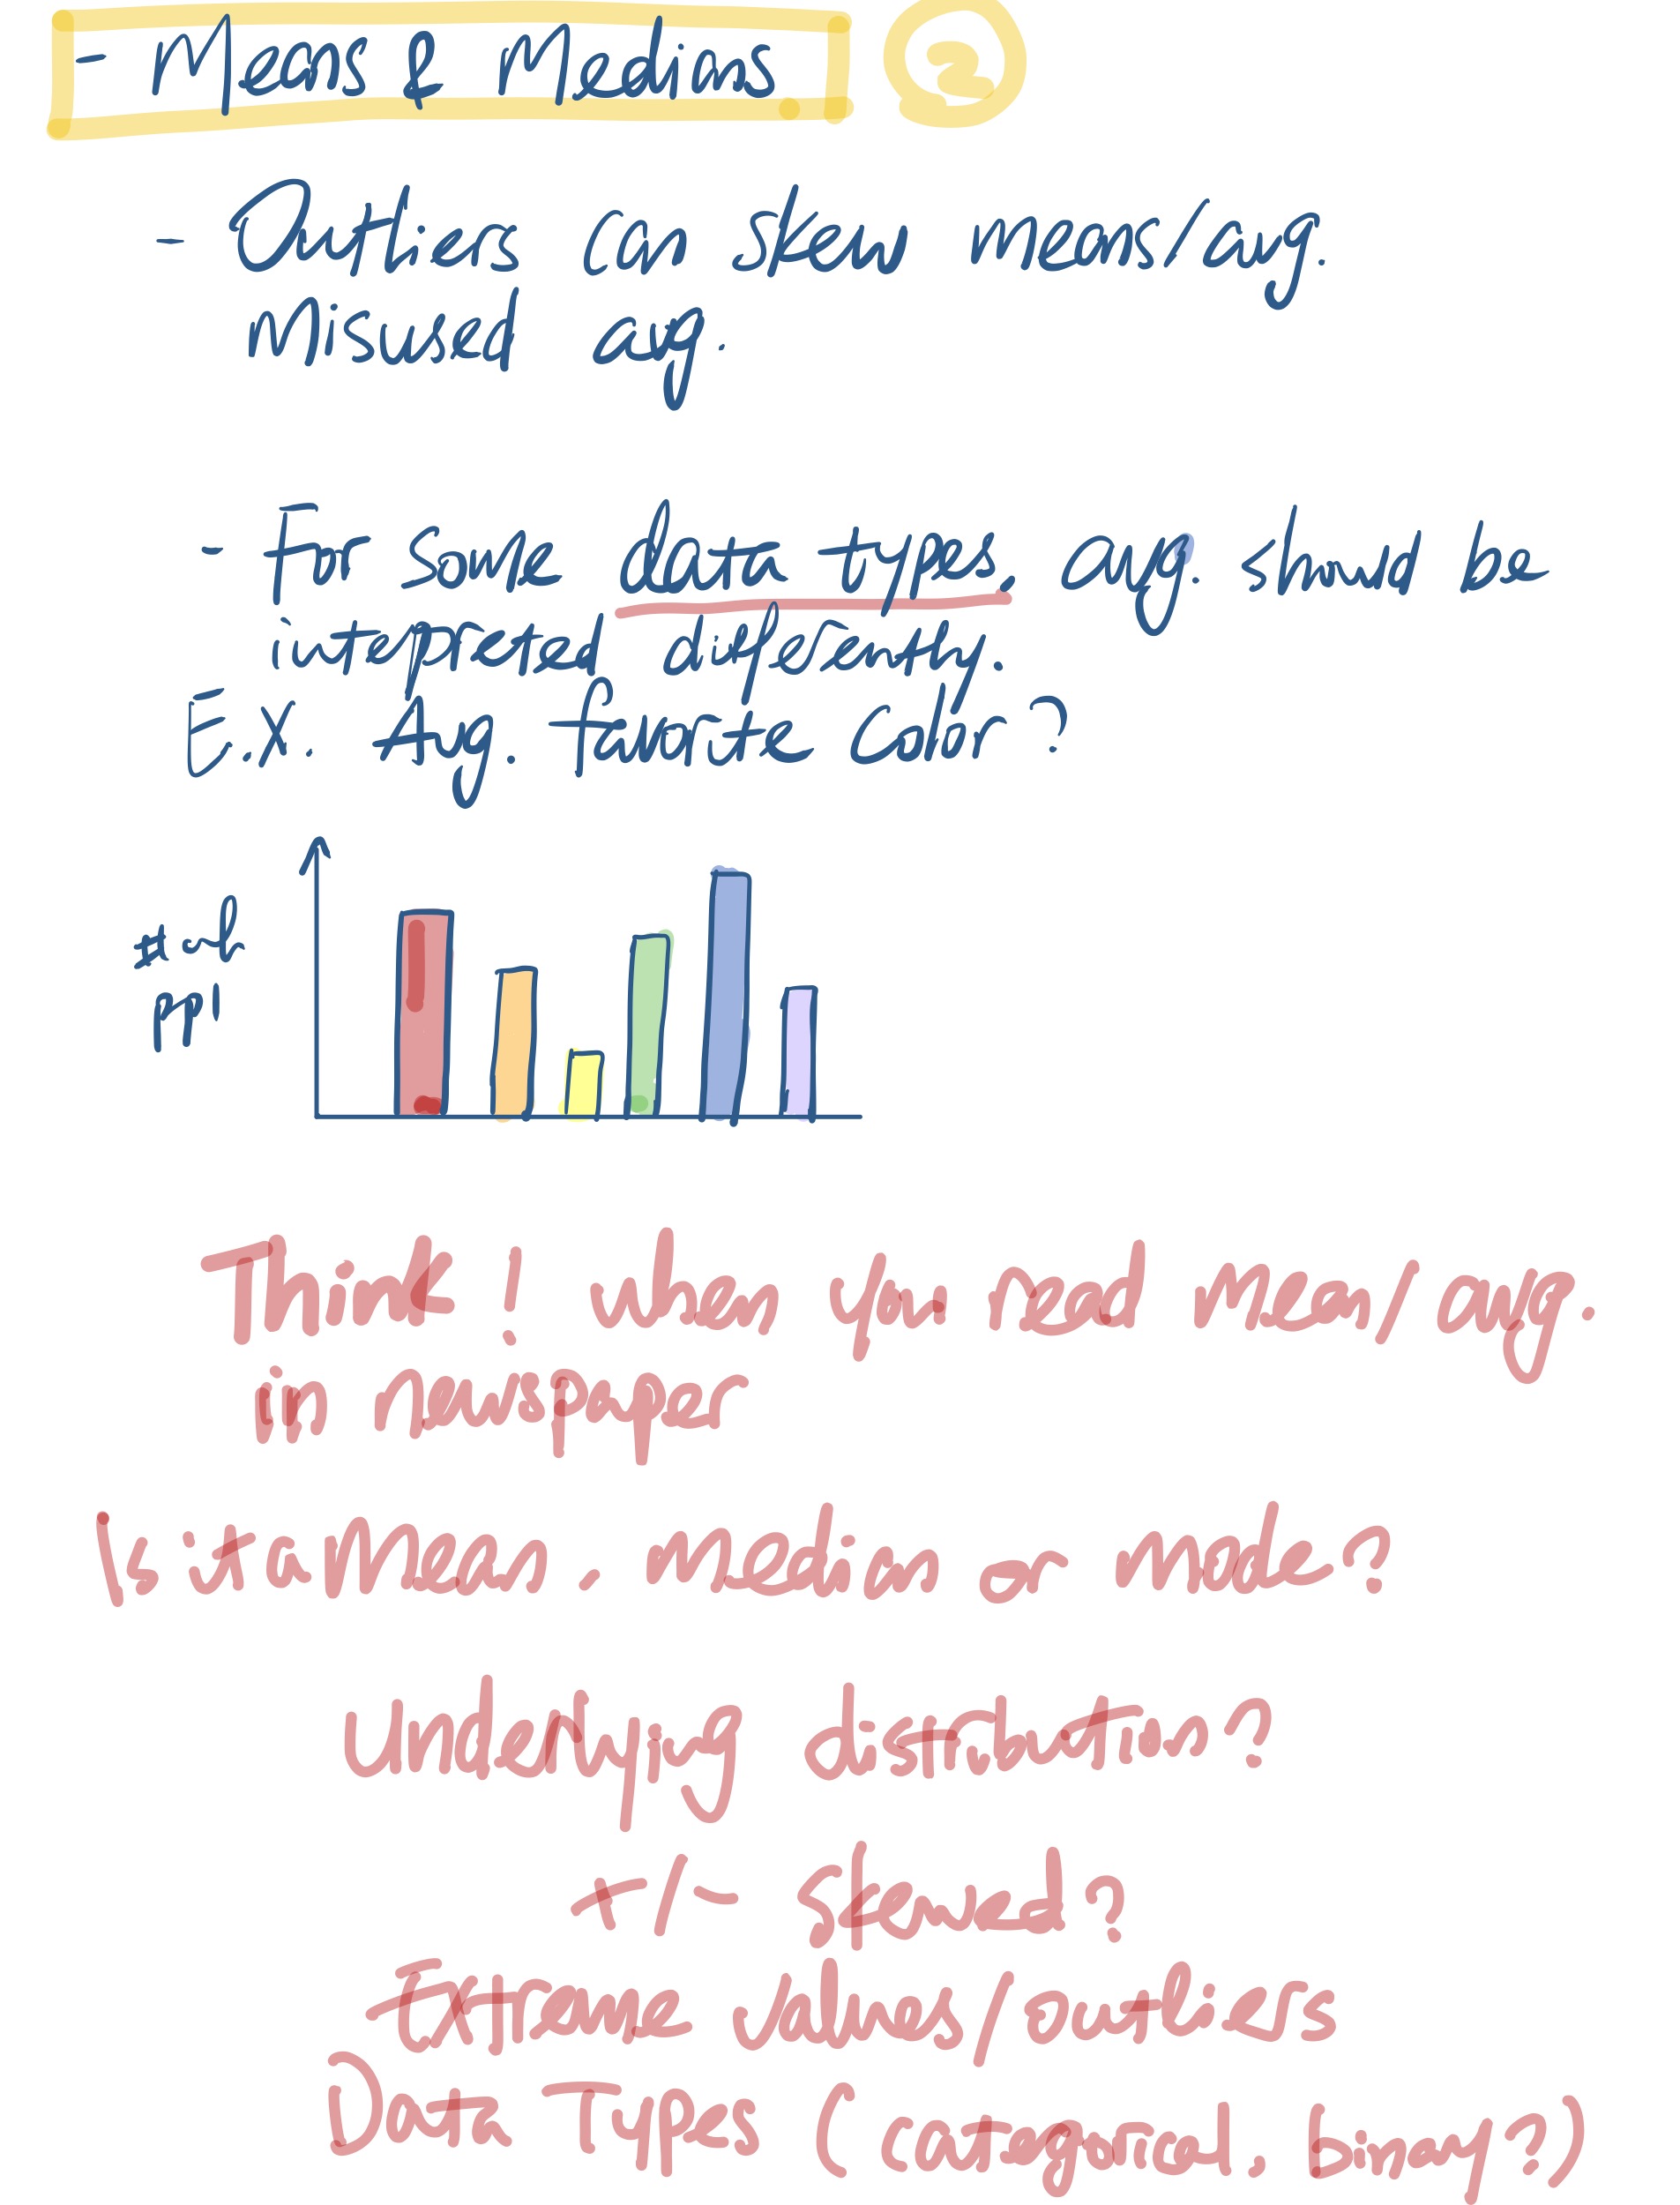 - Means & Medians ②
- Outliers can skew means/avg.
Misused avg.
- For some data types, avg. should be
interpreted differently.
E.X. Avg. favorite color?
# of
ppl
Think! when you read Mean/avg.
in newspaper
Is it a Mean, median or Mode?
underlying distribution?
+/- Skewed?
Extreme values/outliers
Data Types (categorical, Binary?)